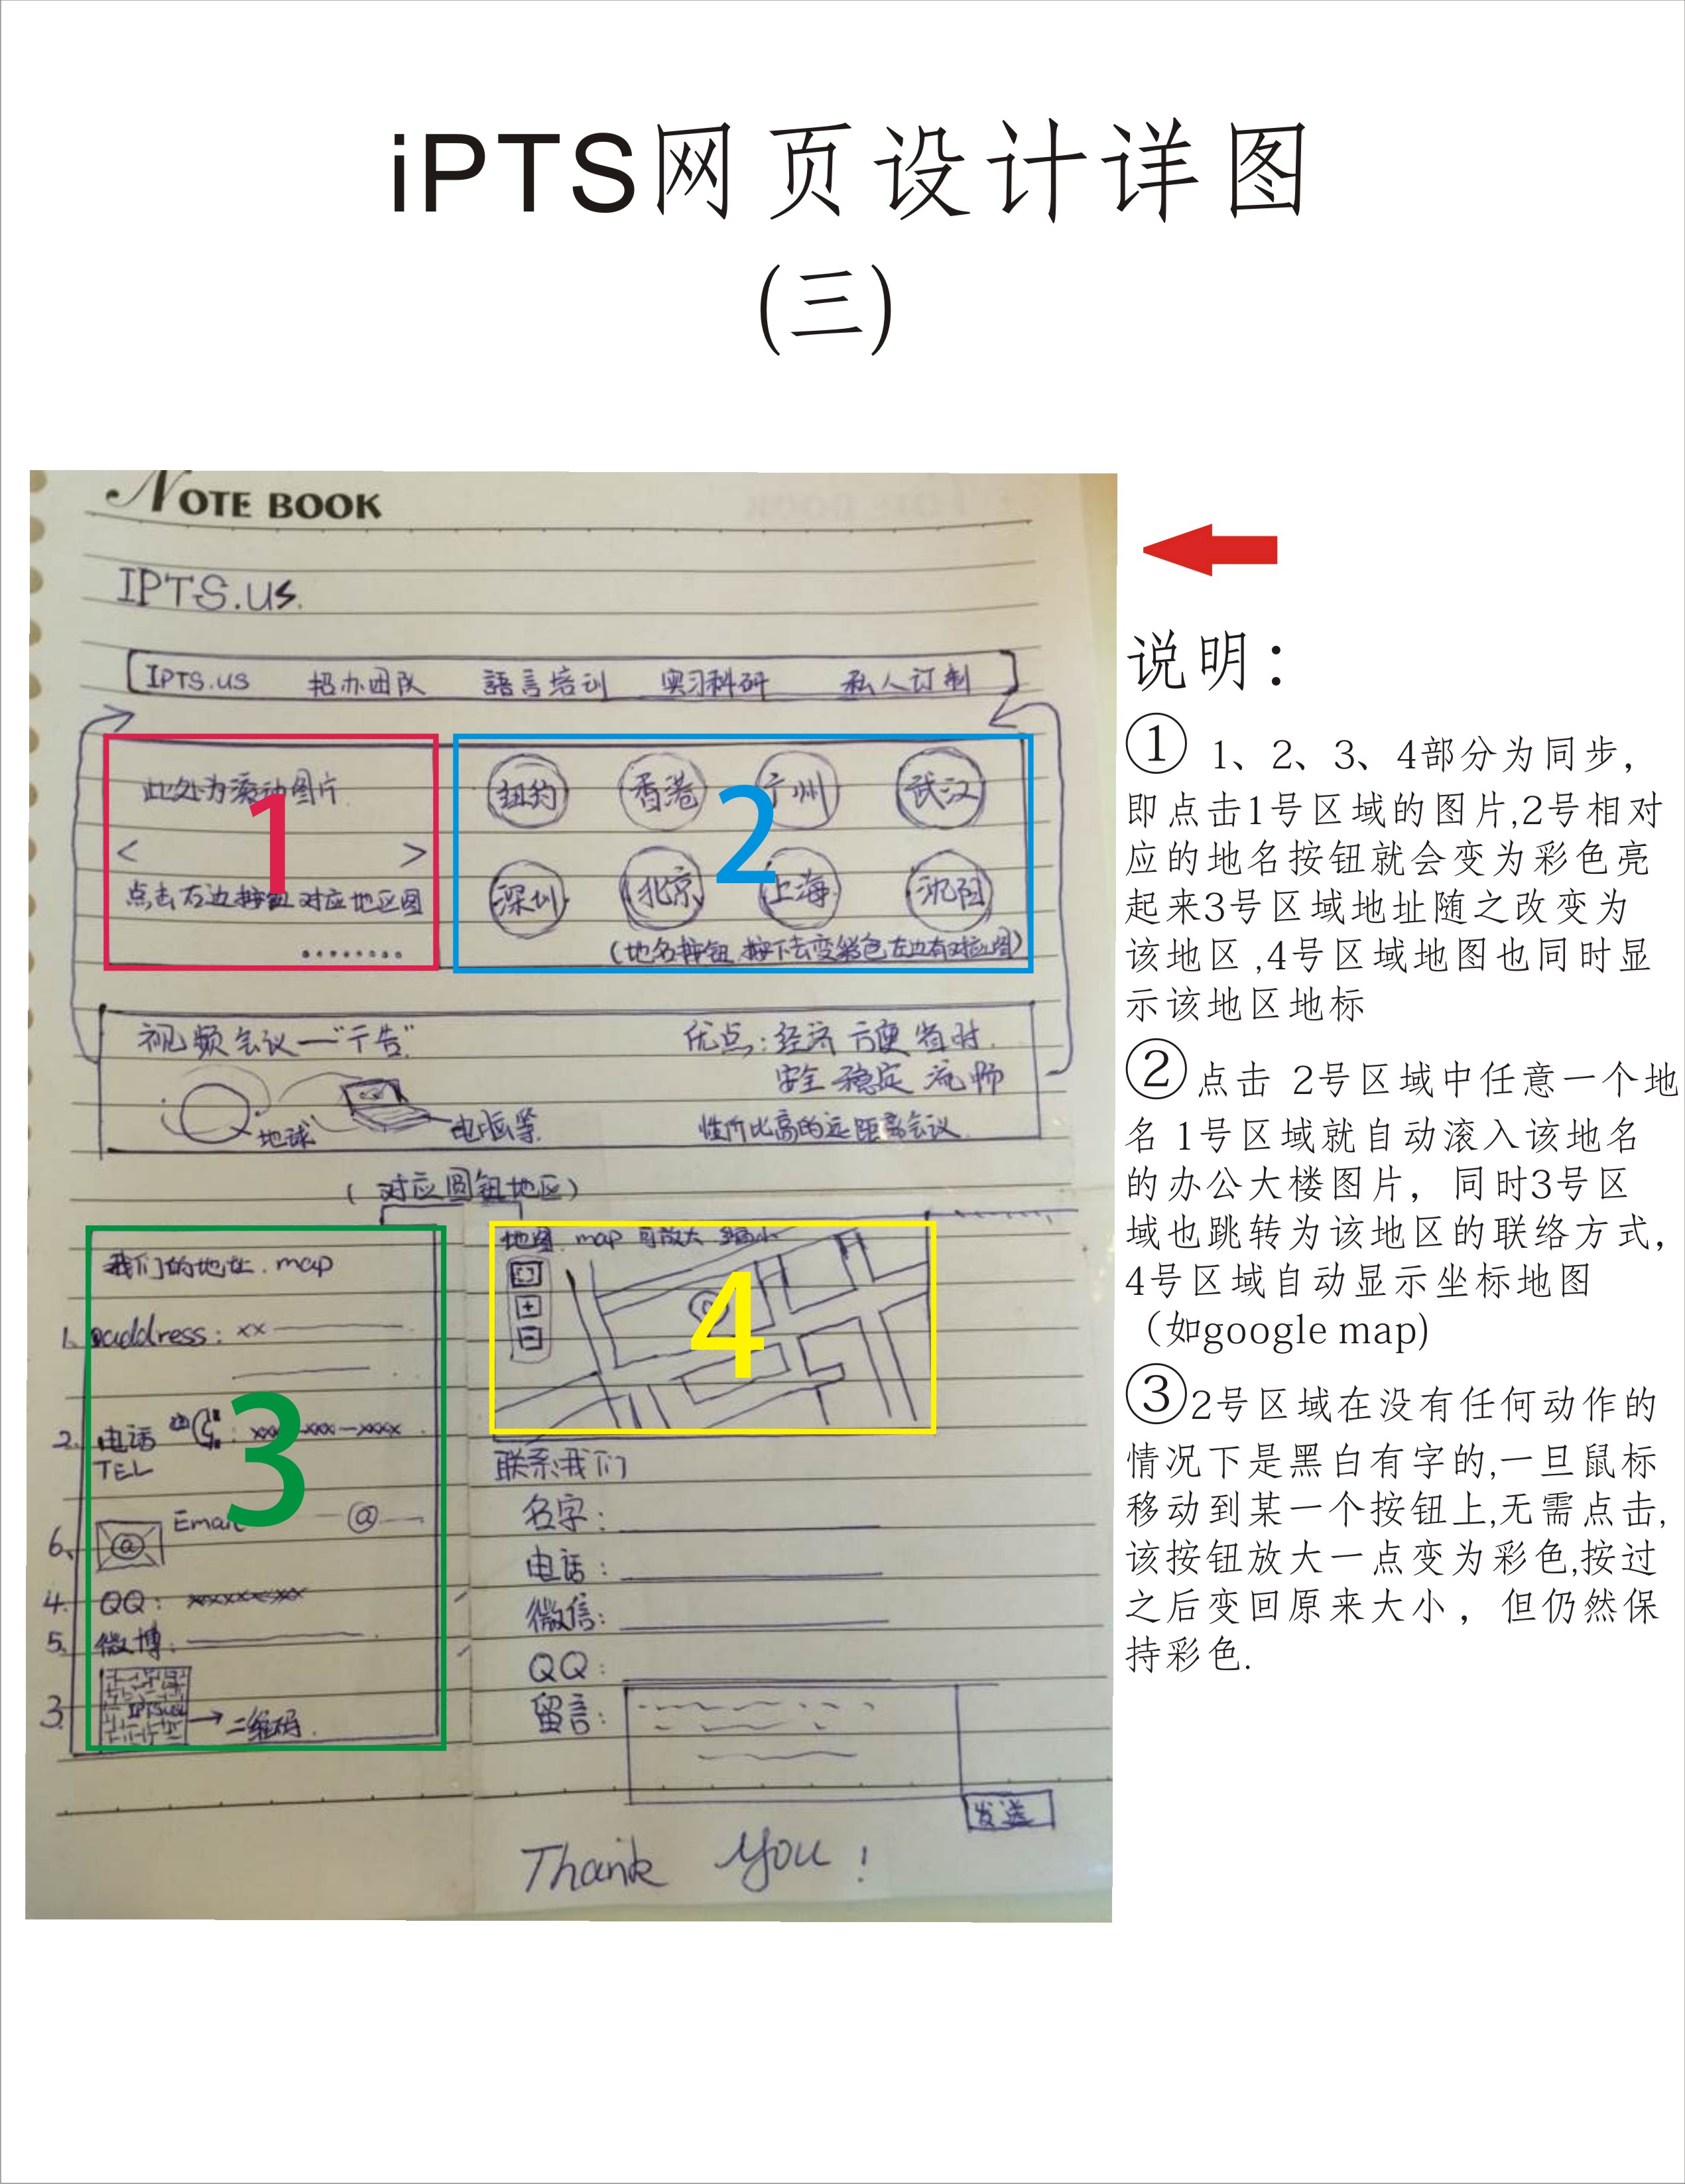 iPTS网页设计详图
(三)
NOTE BOOK
IPTS.us.
IPTS.us 招办团队 語言培训 实习科研 私人订制
此处为滚动图片
1
< >
点击右边按钮 对应地区图
纽约 香港 广州 武汉
2
深圳 北京 上海 沈阳
(地名按钮 按下去变彩色 左边有对应图)
视频会议—"广告"
地球
电脑等
优点: 经济 方便 省时.
安全 稳定 流畅
性价比高的远距离会议.
( 对应圆钮地区)
我们的地址. map
1. address: xx
2. 电话
TEL
: xxx-xxx-xxxx
3
6. @ Email @
4. QQ: xxxxxxxx
5. 微博:
3. IPTS.us → 二维码.
地图. map 可放大 缩小
+
-
4
联系我们
名字:
电话:
微信:
QQ:
留言:
发送
Thank You!
说明:
① 1、2、3、4部分为同步,
即点击1号区域的图片,2号相对
应的地名按钮就会变为彩色亮
起来3号区域地址随之改变为
该地区,4号区域地图也同时显
示该地区地标
②点击 2号区域中任意一个地
名 1号区域就自动滚入该地名
的办公大楼图片, 同时3号区
域也跳转为该地区的联络方式,
4号区域自动显示坐标地图
(如google map)
③2号区域在没有任何动作的
情况下是黑白有字的,一旦鼠标
移动到某一个按钮上,无需点击,
该按钮放大一点变为彩色,按过
之后变回原来大小, 但仍然保
持彩色.